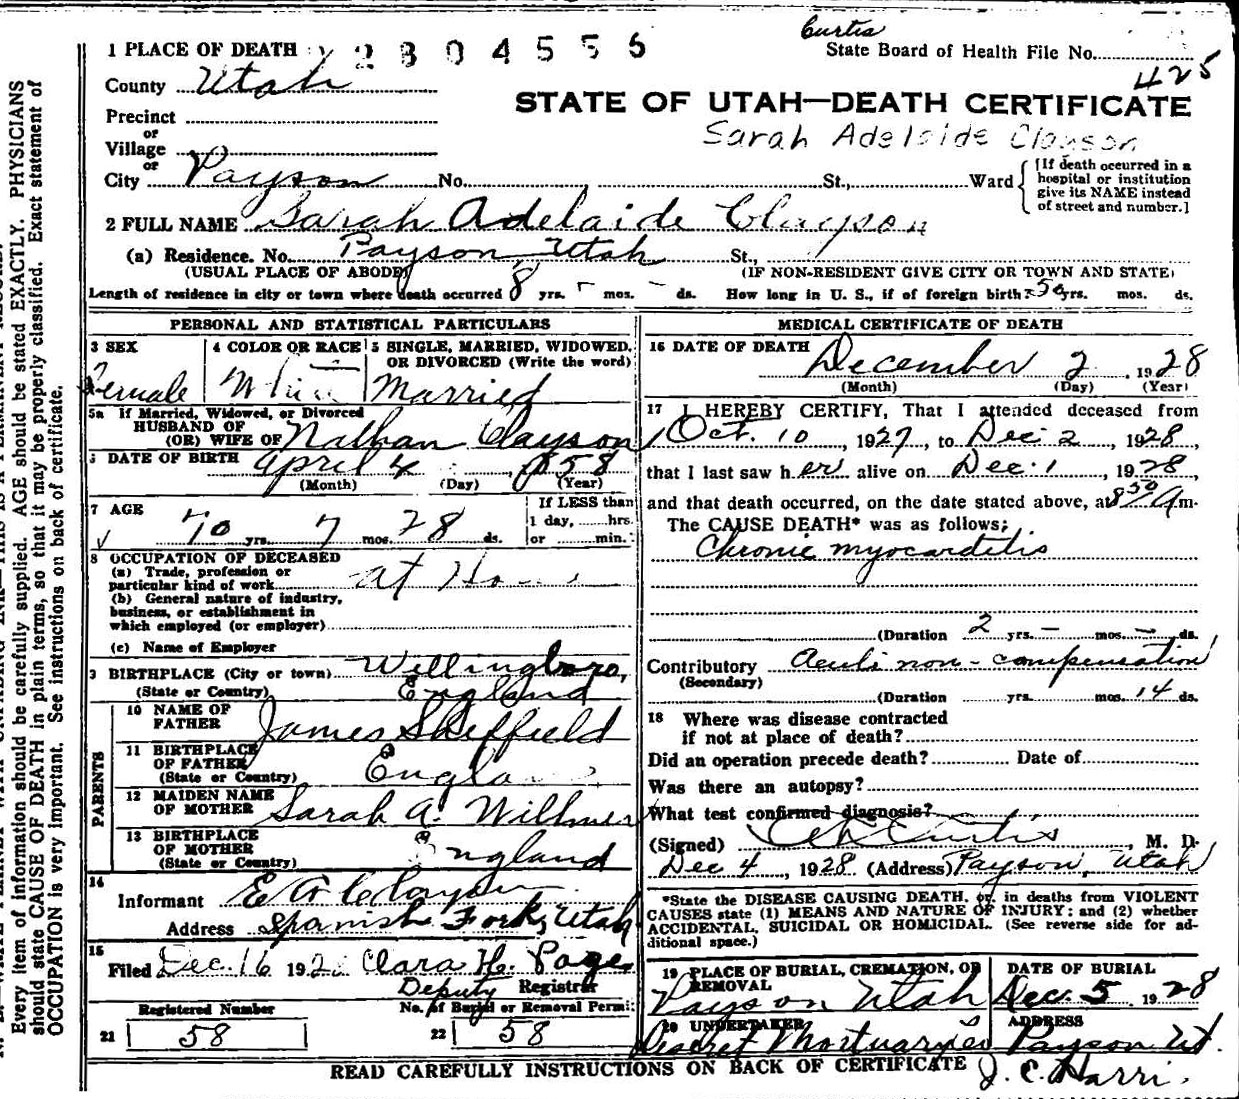 Curtis
1 PLACE OF DEATH 2804556 State Board of Health File No.
425
County Utah
STATE OF UTAH—DEATH CERTIFICATE
Precinct
or
Sarah Adelaide Clayson
Village
or
City Payson No. St., Ward
[If death occurred in a
hospital or institution
give its NAME instead
of street and number.]
2 FULL NAME Sarah Adelaide Clayson
(a) Residence. No. Payson, Utah St.,
(USUAL PLACE OF ABODE) (IF NON-RESIDENT GIVE CITY OR TOWN AND STATE)
Length of residence in city or town where death occurred 8 yrs. - mos. - ds. How long in U. S., if of foreign birth? 50 yrs. mos. ds.
PERSONAL AND STATISTICAL PARTICULARS
3 SEX 4 COLOR OR RACE 5 SINGLE, MARRIED, WIDOWED,
OR DIVORCED (Write the word)
Female White Married
5a If Married, Widowed, or Divorced
HUSBAND OF
(OR) WIFE OF Nathan Clayson
DATE OF BIRTH April 4, 1858
(Month) (Day) (Year)
7 AGE If LESS than
1 day, hrs.
70 yrs. 7 mos. 28 ds. or min.
8 OCCUPATION OF DECEASED
(a) Trade, profession or
particular kind of work at Home
(b) General nature of industry,
business, or establishment in
which employed (or employer)
(c) Name of Employer
9 BIRTHPLACE (City or town) Wellingboro,
(State or Country) England
PARENTS
10 NAME OF
FATHER James Sheffield
11 BIRTHPLACE
OF FATHER England
(State or Country)
12 MAIDEN NAME
OF MOTHER Sarah A. Willmer
13 BIRTHPLACE
OF MOTHER England
(State or Country)
14
Informant E A Clayson
Address Spanish Fork, Utah
15
Filed Dec. 16 192 Clara H. Page
Deputy Registrar
Registered Number No. of Burial or Removal Permit
21 58 22 58
MEDICAL CERTIFICATE OF DEATH
16 DATE OF DEATH December 2, 1928
(Month) (Day) (Year)
17 I HEREBY CERTIFY, That I attended deceased from
Oct. 10, 1927, to Dec 2, 1928,
that I last saw her alive on Dec. 1, 1928,
and that death occurred, on the date stated above, at 8 50 A m.
The CAUSE DEATH* was as follows:
Chronic myocarditis
(Duration 2 yrs. - mos. - ds.
Contributory Acute non-compensation
(Secondary)
(Duration yrs. mos. 14 ds.
18 Where was disease contracted
if not at place of death?
Did an operation precede death? Date of
Was there an autopsy?
What test confirmed diagnosis?
(Signed) Curtis, M. D.
Dec 4, 1928 (Address) Payson, Utah
*State the DISEASE CAUSING DEATH, or, in deaths from VIOLENT
CAUSES state (1) MEANS AND NATURE OF INJURY; and (2) whether
ACCIDENTAL, SUICIDAL OR HOMICIDAL. (See reverse side for ad-
ditional space.)
19 PLACE OF BURIAL, CREMATION, OR DATE OF BURIAL
REMOVAL
Payson Utah Dec. 5, 1928
20 UNDERTAKER ADDRESS
Deseret Mortuaries Payson Ut.
READ CAREFULLY INSTRUCTIONS ON BACK OF CERTIFICATE J. E. Harri.
Every item of information should be carefully supplied. AGE should be stated EXACTLY. PHYSICIANS
should state CAUSE OF DEATH in plain terms, so that it may be properly classified. Exact statement of
OCCUPATION is very important. See instructions on back of certificate.